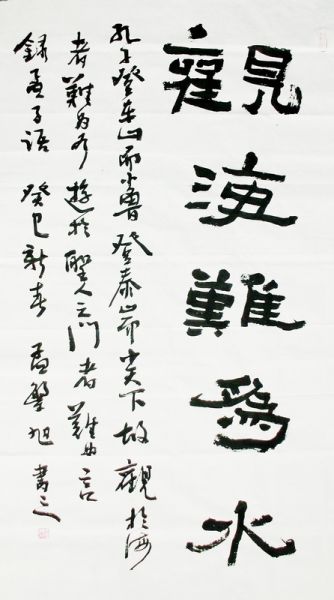 觀海難爲水
孔子登東山而小魯登泰山而小天下故觀於海
者難為水遊於聖人之門者難為言
錄孟子語 癸巳新春 孟旭書之